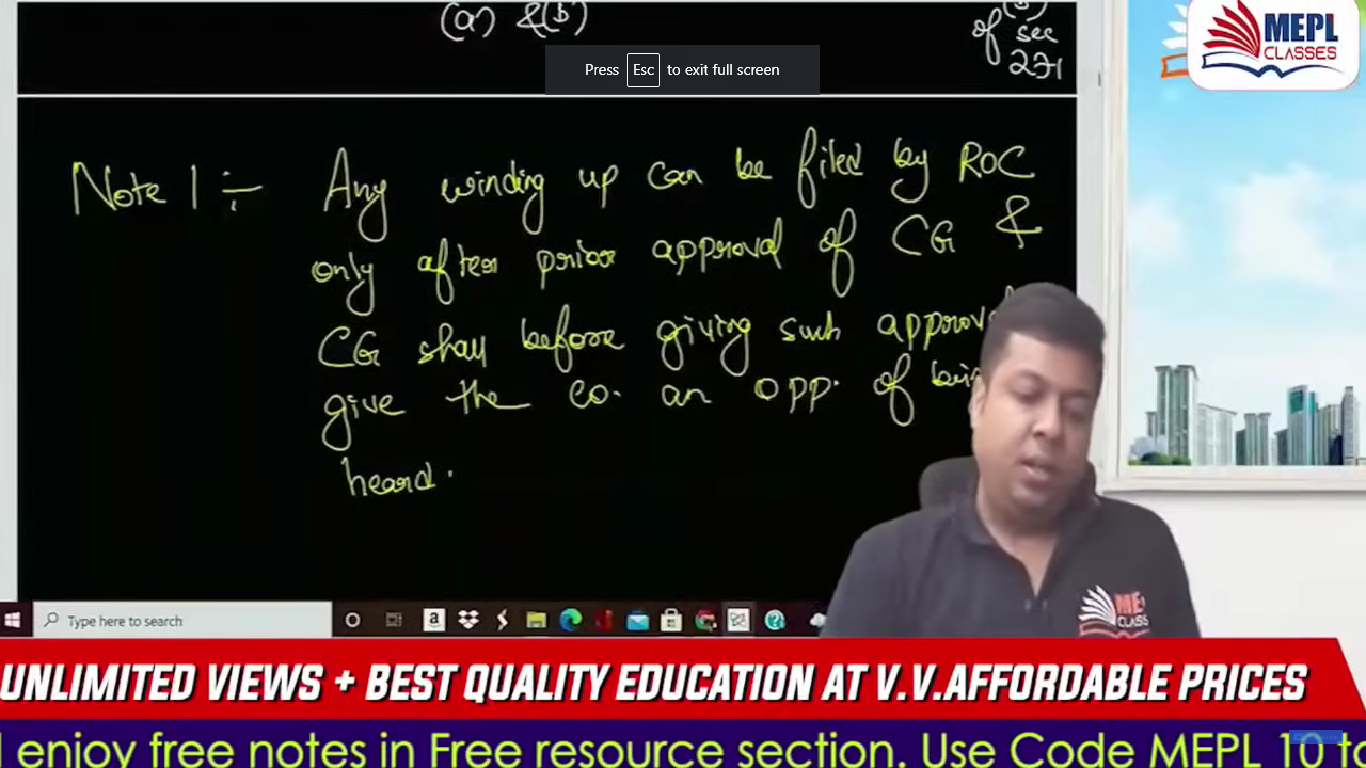 (a) &(b)
of sec
271
MEPL
CLASSES
Press Esc to exit full screen
Note 1 :- Any winding up can be filed by ROC
only after prior approval of CG &
CG shall before giving such approval
give the co. an opp. of
heard.
Type here to search
ME
CLASS
UNLIMITED VIEWS + BEST QUALITY EDUCATION AT V.V.AFFORDABLE PRICES
enjoy free notes in Free resource section. Use Code MEPL 10 to